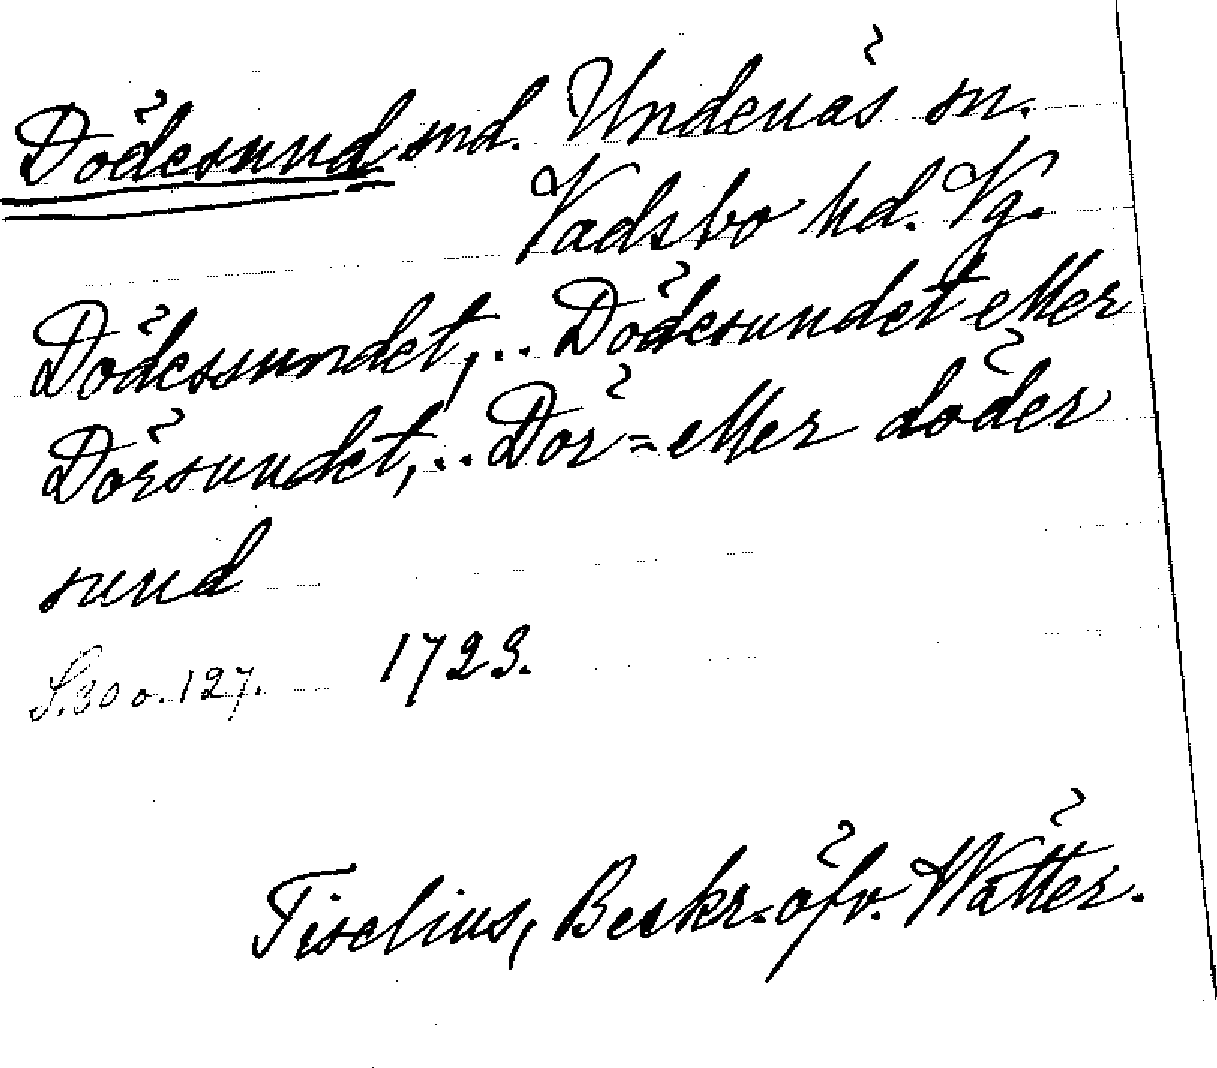 Dödesund snd. Undenäs sn.
Vadsbo hd. Vg.
Dödessundet,.. Dödesundet eller
Dörsundet,.. Dör= eller döder
sund
S. 30 o. 127. 1723.
Tiselius, Beskr. öfv. Wätter.